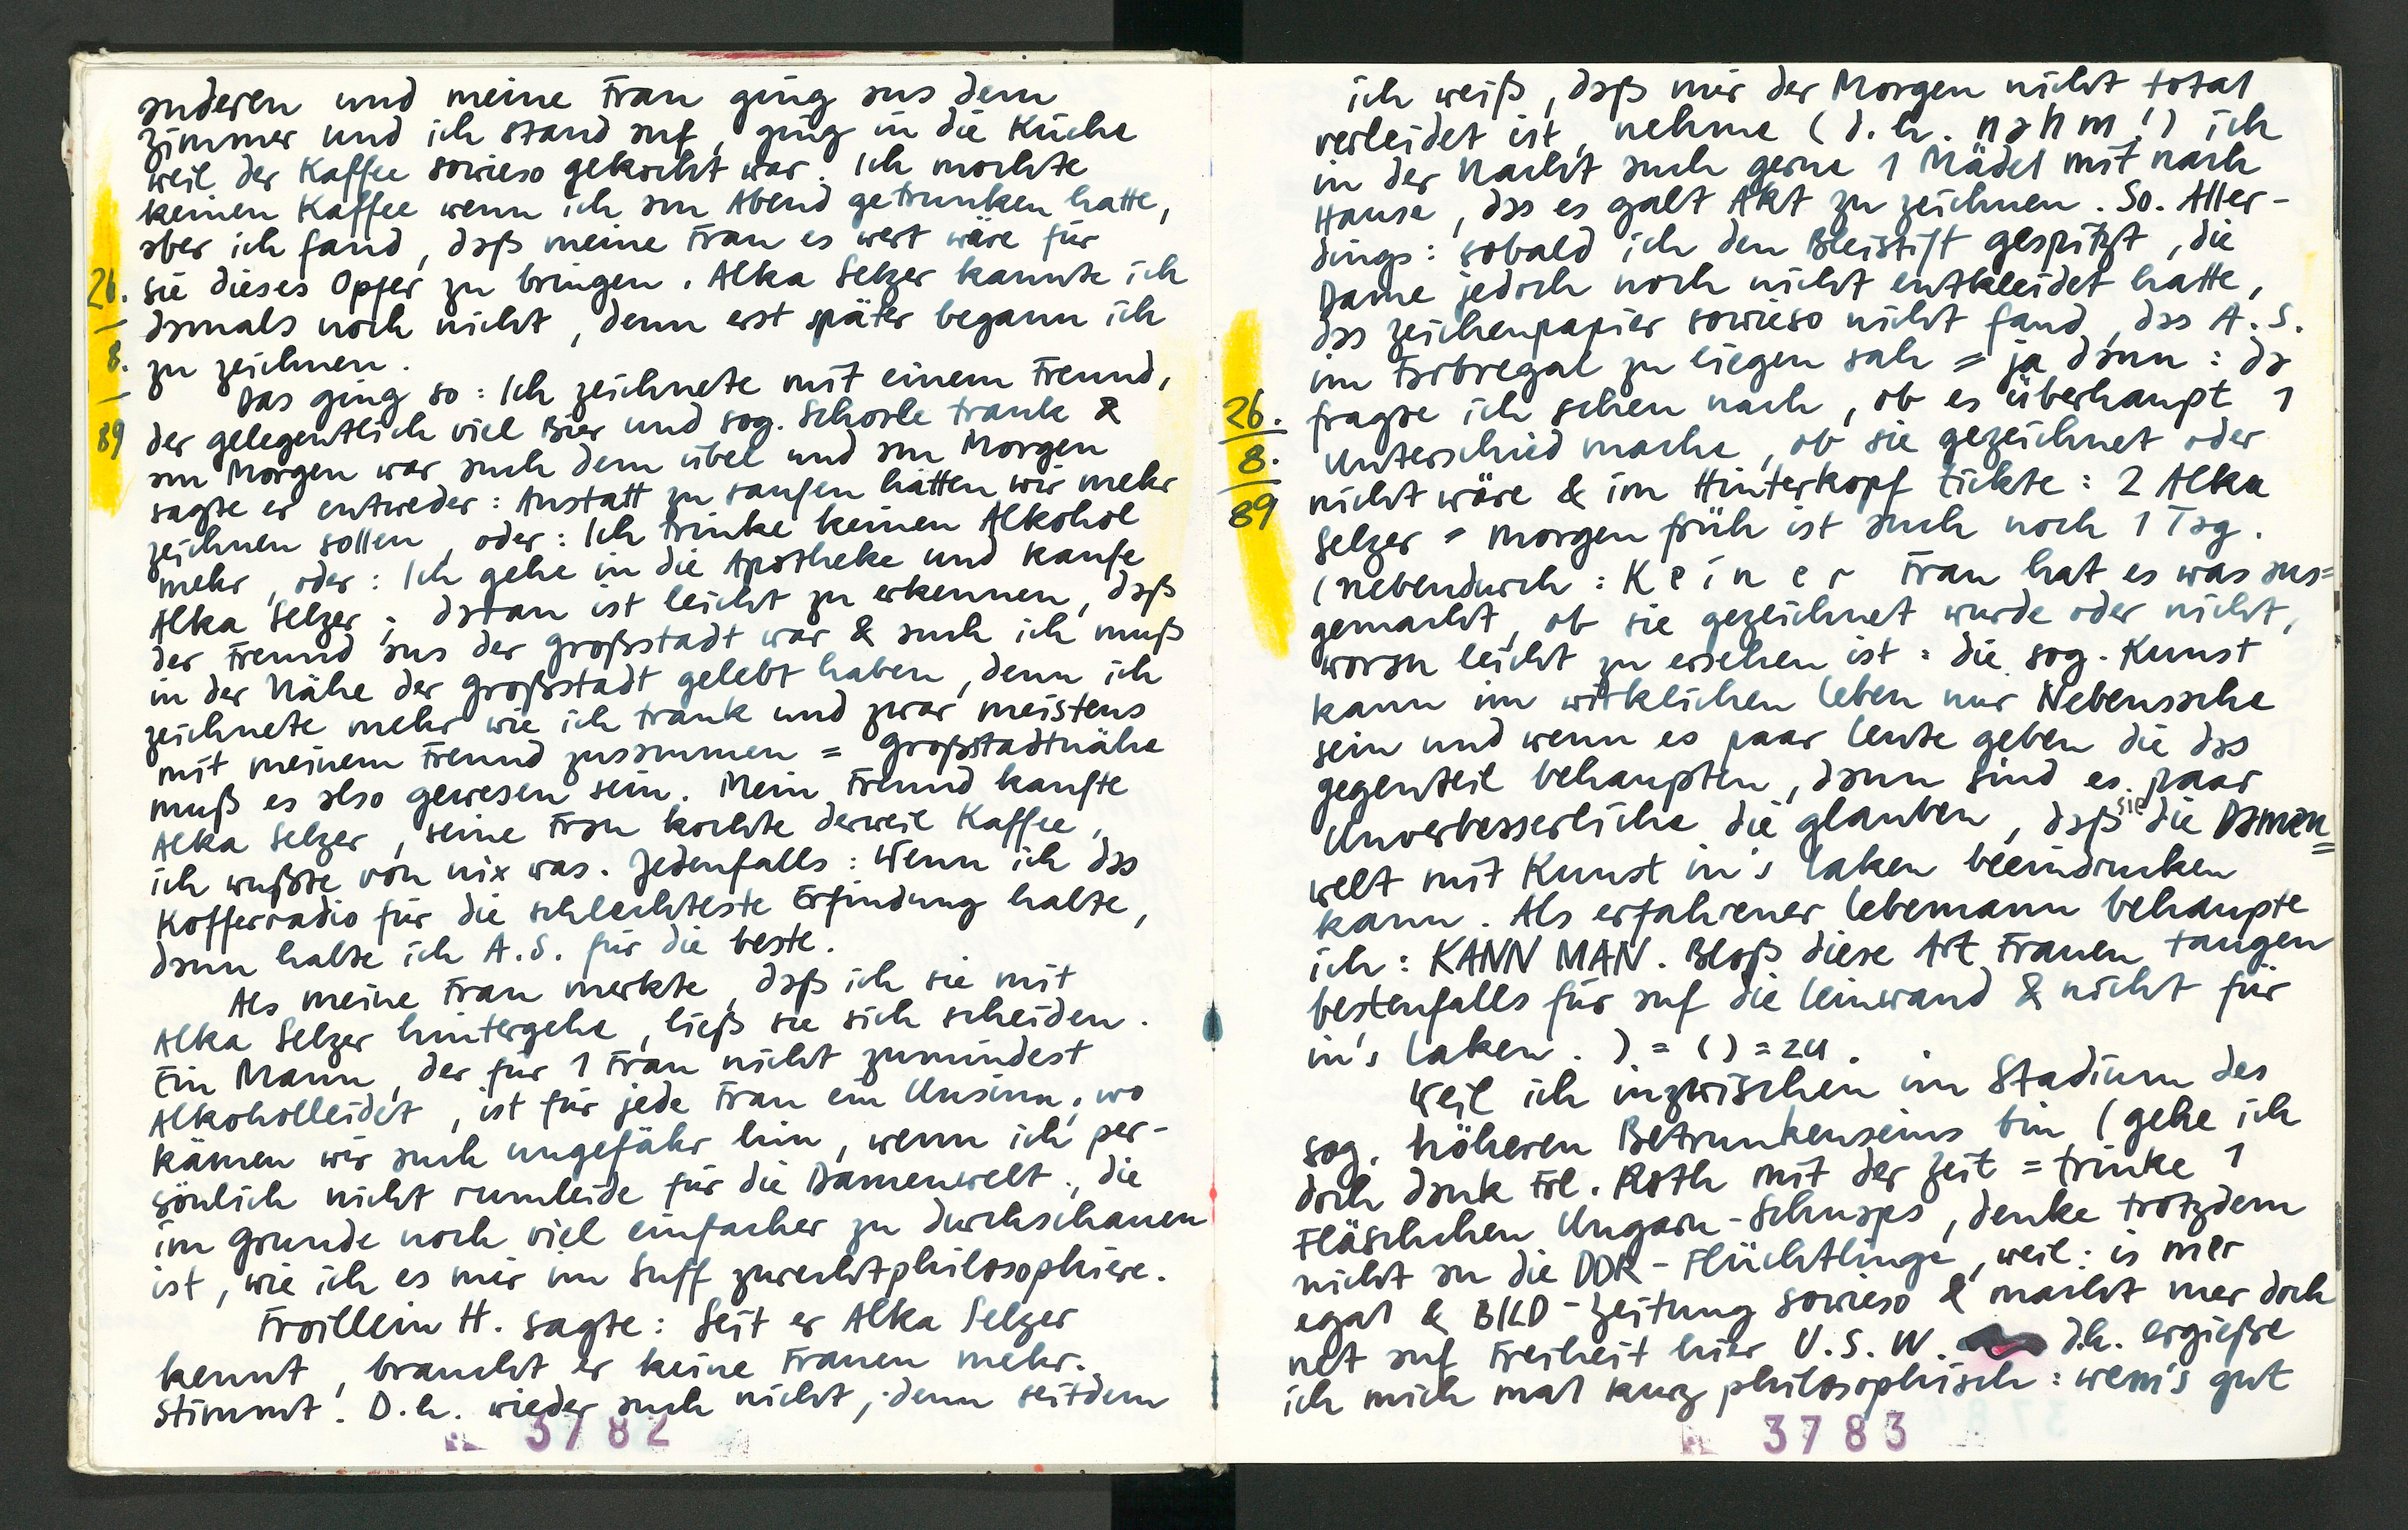 anderen und meine Frau ging aus dem
Zimmer und ich stand auf, ging in die Küche
weil der Kaffee sowieso gekocht war. Ich mochte
keinen Kaffee wenn ich am Abend getrunken hatte,
aber ich fand, daß meine Frau es wert wäre für
sie dieses Opfer zu bringen. Alka Selzer kannte ich
damals noch nicht, denn erst später begann ich
zu zeichnen.
Das ging so: Ich zeichnete mit einem Freund,
der gelegentlich viel Bier und sog. Schorle trank &
am Morgen war auch dem übel und am Morgen
sagte er entweder: Anstatt zu saufen hätten wir mehr
zeichnen sollen, oder: Ich trinke keinen Alkohol
mehr, oder: Ich gehe in die Apotheke und kaufe
Alka Selzer; daran ist leicht zu erkennen, daß
der Freund aus der Großstadt war & auch ich muß
in der Nähe der Großstadt gelebt haben, denn ich
zeichnete mehr wie ich trank und zwar meistens
mit meinem Freund zusammen = Großstadtnähe
muß es also gewesen sein. Mein Freund kaufte
Alka Selzer, seine Frau kochte derweil Kaffee,
ich wußte von nix was. Jedenfalls: Wenn ich das
Kofferradio für die schlechteste Erfindung halte,
dann halte ich A.S. für die beste.
Als meine Frau merkte, daß ich sie mit
Alka Selzer hintergehe, ließ sie sich scheiden.
Ein Mann, der für 1 Frau nicht zumindest
Alkoholleidet, ist für jede Frau ein Unsinn; wo
kämen wir auch ungefähr hin, wenn ich per-
sönlich nicht rumleide für die Damenwelt, die
im Grunde noch viel einfacher zu durchschauen
ist, wie ich es mir im Suff zurechtphilosophiere.
Froillein H. sagte: Seit er Alka Selzer
kennt, braucht er keine Frauen mehr.
Stimmt! D.h. wieder auch nicht, denn seitdem
26.
8.
89
3782
ich weiß, daß mir der Morgen nicht total
verleidet ist, nehme (d.h. nahm!) ich
in der Nacht auch gerne 1 Mädel mit nach
Hause, das es galt Akt zu zeichnen. So. Aller-
dings: sobald ich den Bleistift gespitzt, die
Dame jedoch noch nicht entkleidet hatte,
das Zeichenpapier sowieso nicht fand, das A.S.
im Farbregal zu liegen sah = ja dann: da
fragte ich schon nach, ob es überhaupt 1
Unterschied mache, ob sie gezeichnet oder
nicht wäre & im Hinterkopf tickte: 2 Alka
Selzer = morgen früh ist auch noch 1 Tag.
(nebendurch: Keiner Frau hat es was aus=
gemacht, ob sie gezeichnet wurde oder nicht,
woran leicht zu ersehen ist: die sog. Kunst
kann im wirklichen Leben nur Nebensache
sein und wenn es paar Leute geben die das
Gegenteil behaupten, dann sind es paar
Unverbesserliche die glauben, daß sie die Damen=
welt mit Kunst in's Laken beeindrucken
kann. Als erfahrener Lebemann behaupte
ich: KANN MAN. Bloß diese Art Frauen taugen
bestenfalls für auf die Leinwand & nicht für
in's Laken.) = () = zu.
Weil ich inzwischen im Stadium des
sog. höheren Betrunkenseins bin (gehe ich
doch dank Frl. Roth mit der Zeit = trinke 1
Fläschchen Ungarn-Schnaps, denke trotzdem
nicht an die DDR-Flüchtlinge, weil: is mer
egal & BILD-Zeitung sowieso & macht mer doch
net auf Freiheit hier U.S.W. d.h. ergieße
ich mich mal kurz philosophisch: wem's gut
26.
8.
89
3783